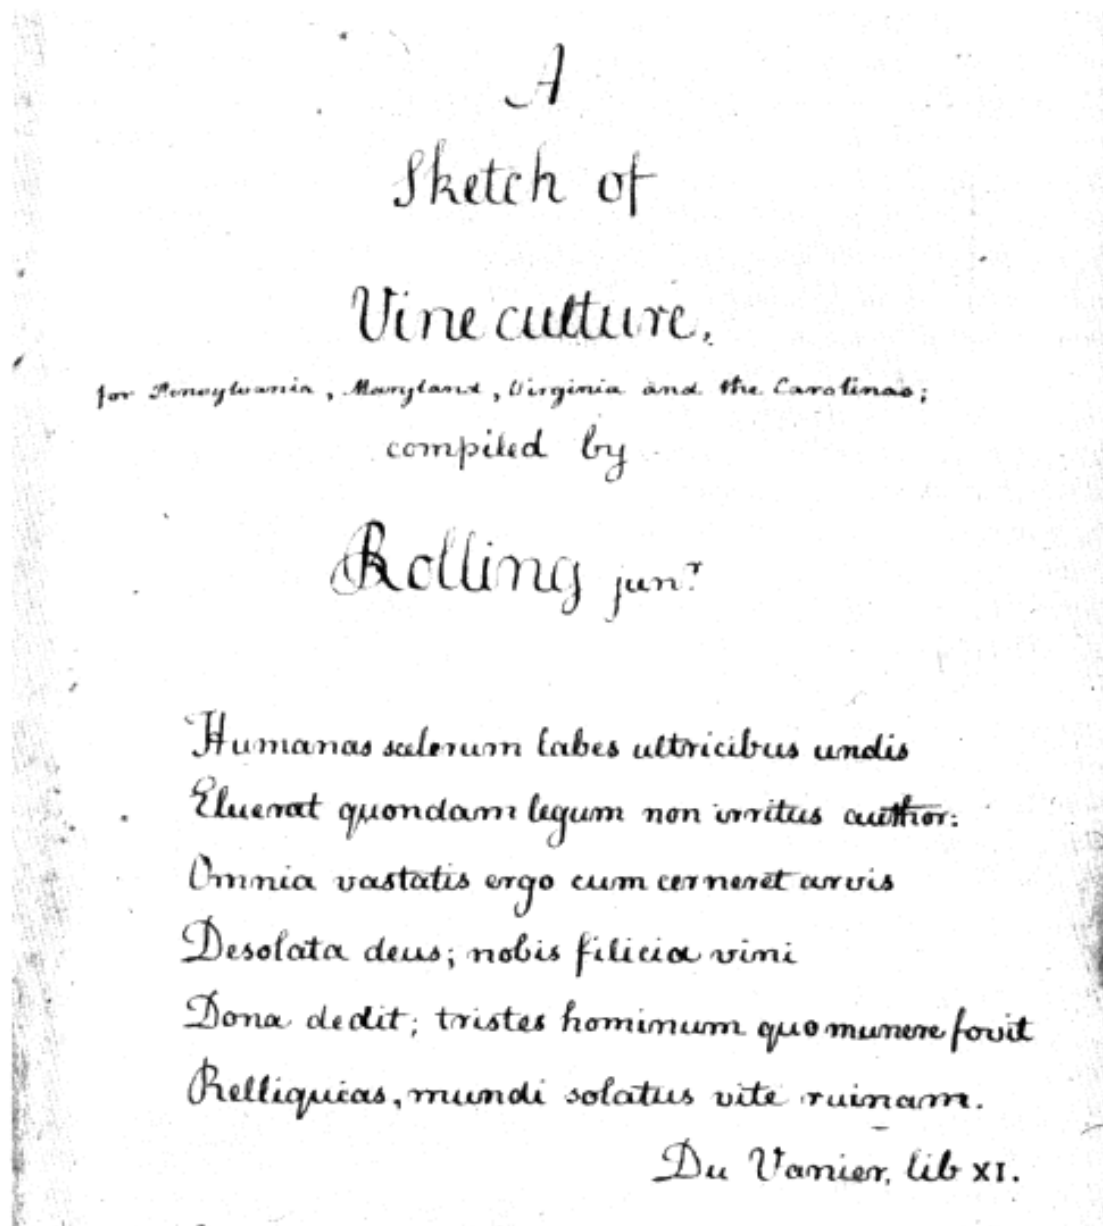 A
Sketch of
Vine culture,
for Pensylvania, Maryland, Virginia and the Carolinas;
compiled by
RBolling jun.r
Humanas scelerum labes ultricibus undis
Eluerat quondam legum non irritus author:
Omnia vastatis ergo cum cerneret arvis
Desolata deus; nobis filicia vini
Dona dedit; tristes hominum quo munere fovit
Relliquias, mundi solatus vite ruinam.
Du Vanier, lib XI.